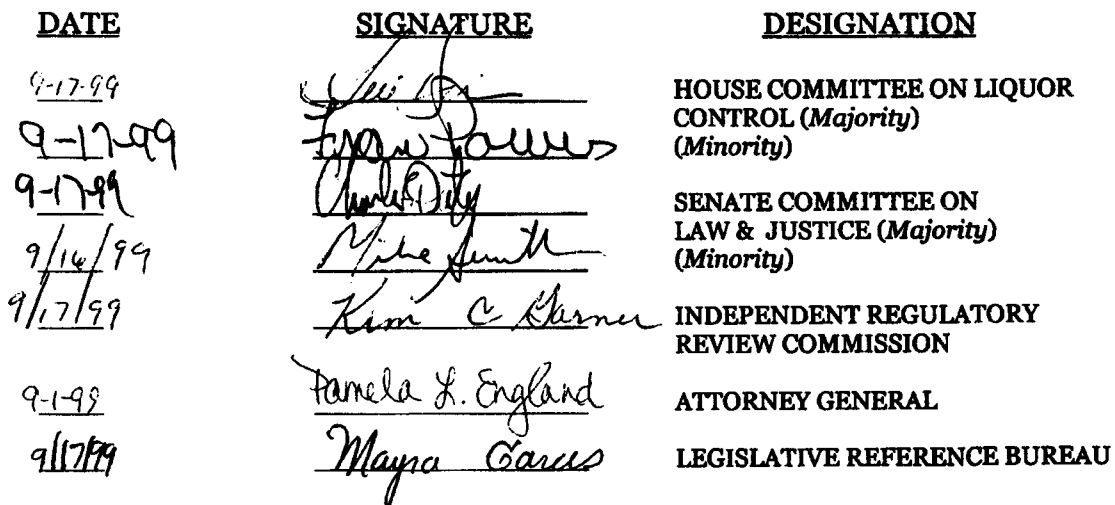 DATE SIGNATURE DESIGNATION
9-17-99 HOUSE COMMITTEE ON LIQUOR
CONTROL (Majority)
9-17-99 (Minority)
9-17-99 SENATE COMMITTEE ON
LAW & JUSTICE (Majority)
9/16/99 Mike Smith (Minority)
9/17/99 Kim C Garner INDEPENDENT REGULATORY
REVIEW COMMISSION
9-1-99 Pamela L. England ATTORNEY GENERAL
9/17/99 Mayra Garcis LEGISLATIVE REFERENCE BUREAU